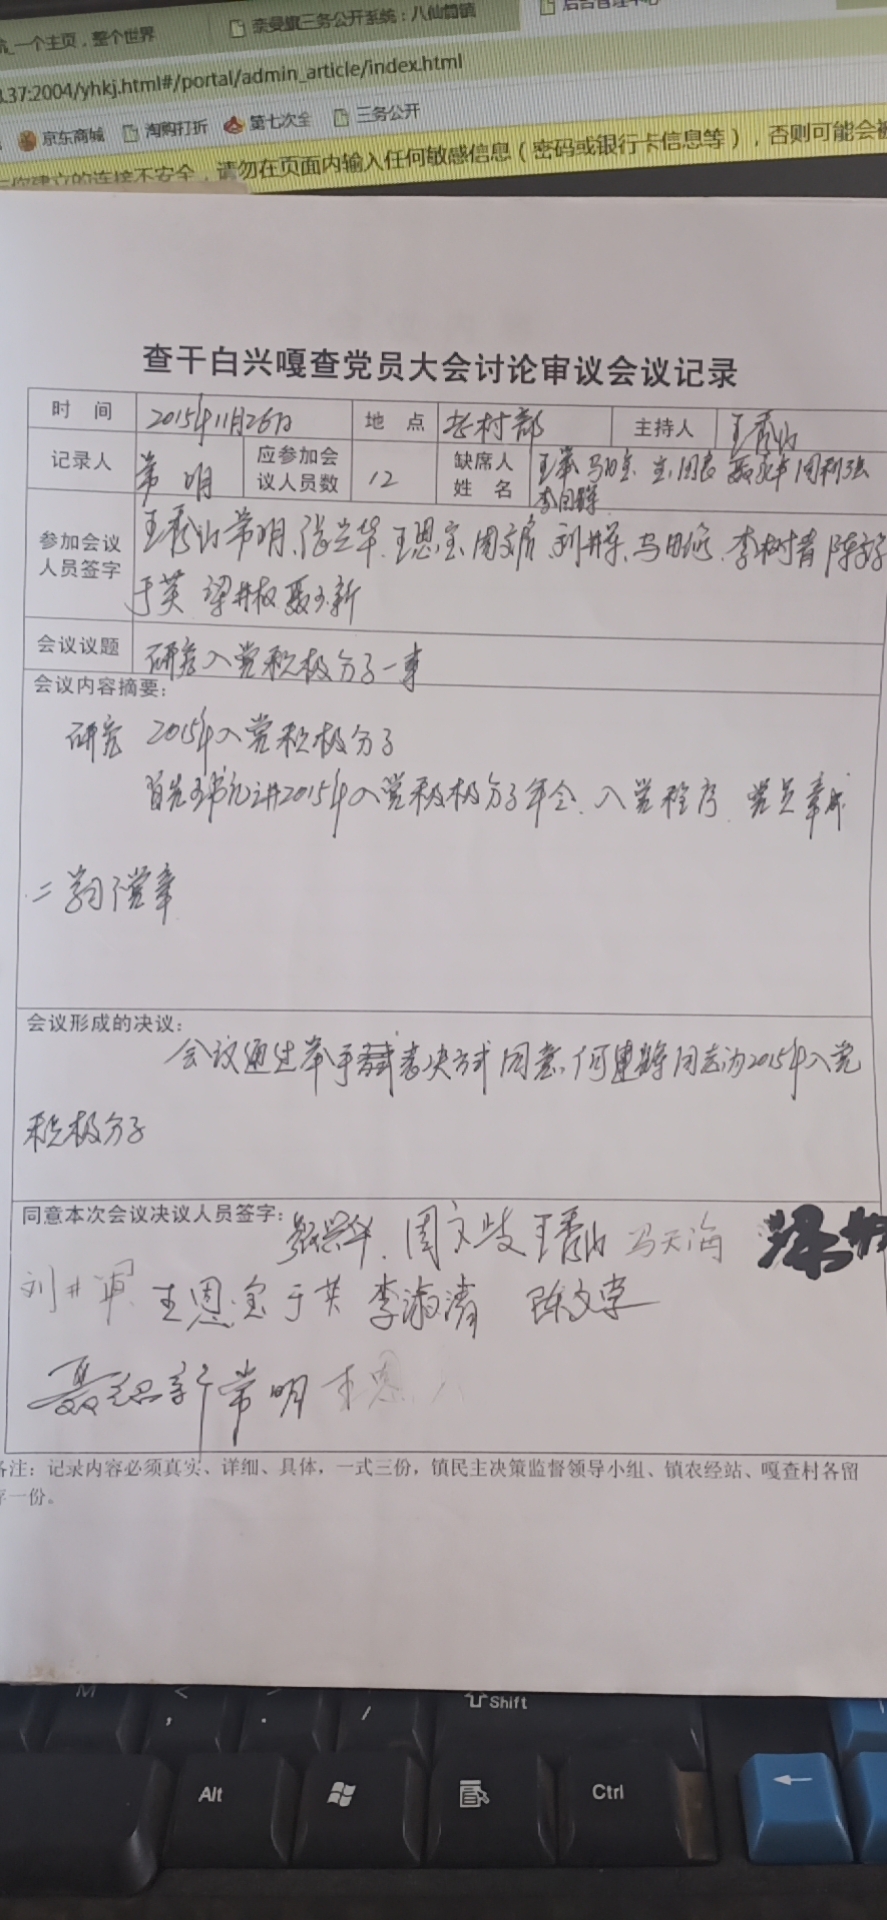 一个主页，整个世界
奈曼旗三务公开系统：八仙筒镇
后台管理中心
3.37:2004/yhkj.html#/portal/admin_article/index.html
京东商城 淘购打折 第七次全 三务公开
你建立的连接不安全，请勿在页面内输入任何敏感信息（密码或银行卡信息等），否则可能会被
查干白兴嘎查党员大会讨论审议会议记录
时 间 2015年11月26日 地 点 老村部 主持人 王秀山
记录人 常明 应参加会议人员数 12 缺席人姓名
参加会议人员签字 王秀山 常明、张兴华、王恩宝、周文岐、刘井军、马田海、李树青 陈文学
于英 梁井权 聂志新
会议议题 研究入党积极分子一事
会议内容摘要：
研究 2015年入党积极分子
首先王书记讲2015年入党积极分子年令、入党程序、党员章成
二 学习党章
会议形成的决议：
会议通过举手表决方式同意，何建辉同志为2015年入党
积极分子
同意本次会议决议人员签字：张兴华、周文岐 王秀山 冯天海
刘井军 王恩宝 于英 李淑清 陈文学
聂志新 常明 王恩
备注：记录内容必须真实、详细、具体，一式三份，镇民主决策监督领导小组、镇农经站、嘎查村各留
存一份。
M < , > . / Shift
Alt Ctrl ←